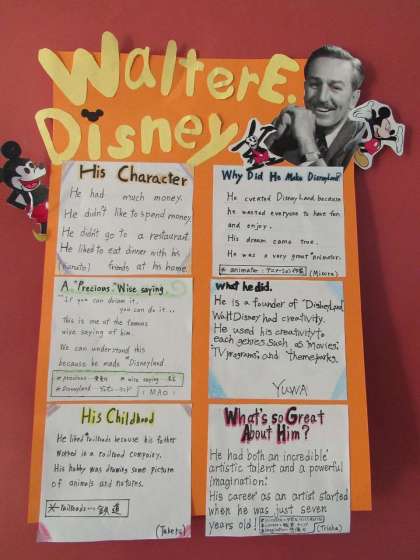 Walter E.
Disney
His Character
He had much money.
He didn't like to spend money
He didn't go to a restaurant.
He liked to eat dinner with his
friends at his home
Why Did He Make Disneyland?
He created Disneyland because
he wanted everyone to have fun
and enjoy.
His dream came true.
He was a very great animator.
* animator
(Misora)
A "Precious" Wise saying
"If you can dream it,
you can do it..
This is one of the famous
wise saying of him.
We can understand this
because he made "Disneyland
* precious
* wise saying
* Disneyland
(MAO)
What he did.
He is a founder of "Disneyland
Walt Disney had creativity.
He used his creativity to
each genres. Such as "Movies",
"TV programs", and "theme parks.
YUWA
His Childhood
He liked railroads because his father
worked in a railroad company.
His hobby was drawing some picture
of animals and natures.
* railroads... 鉄道
What's so Great
About Him?
He had both an incredible
artistic talent and a powerful
imagination.
His career as an artist started
when he was just seven
years old!